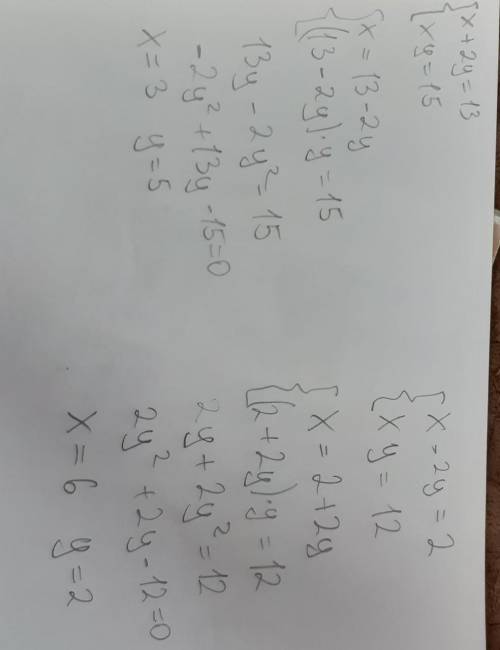 x + 2y = 13
xy = 15
x = 13 - 2y
(13 - 2y) · y = 15
13y - 2y² = 15
-2y² + 13y - 15 = 0
x = 3 y = 5
x - 2y = 2
xy = 12
x = 2 + 2y
(2 + 2y) · y = 12
2y + 2y² = 12
2y² + 2y - 12 = 0
x = 6 y = 2